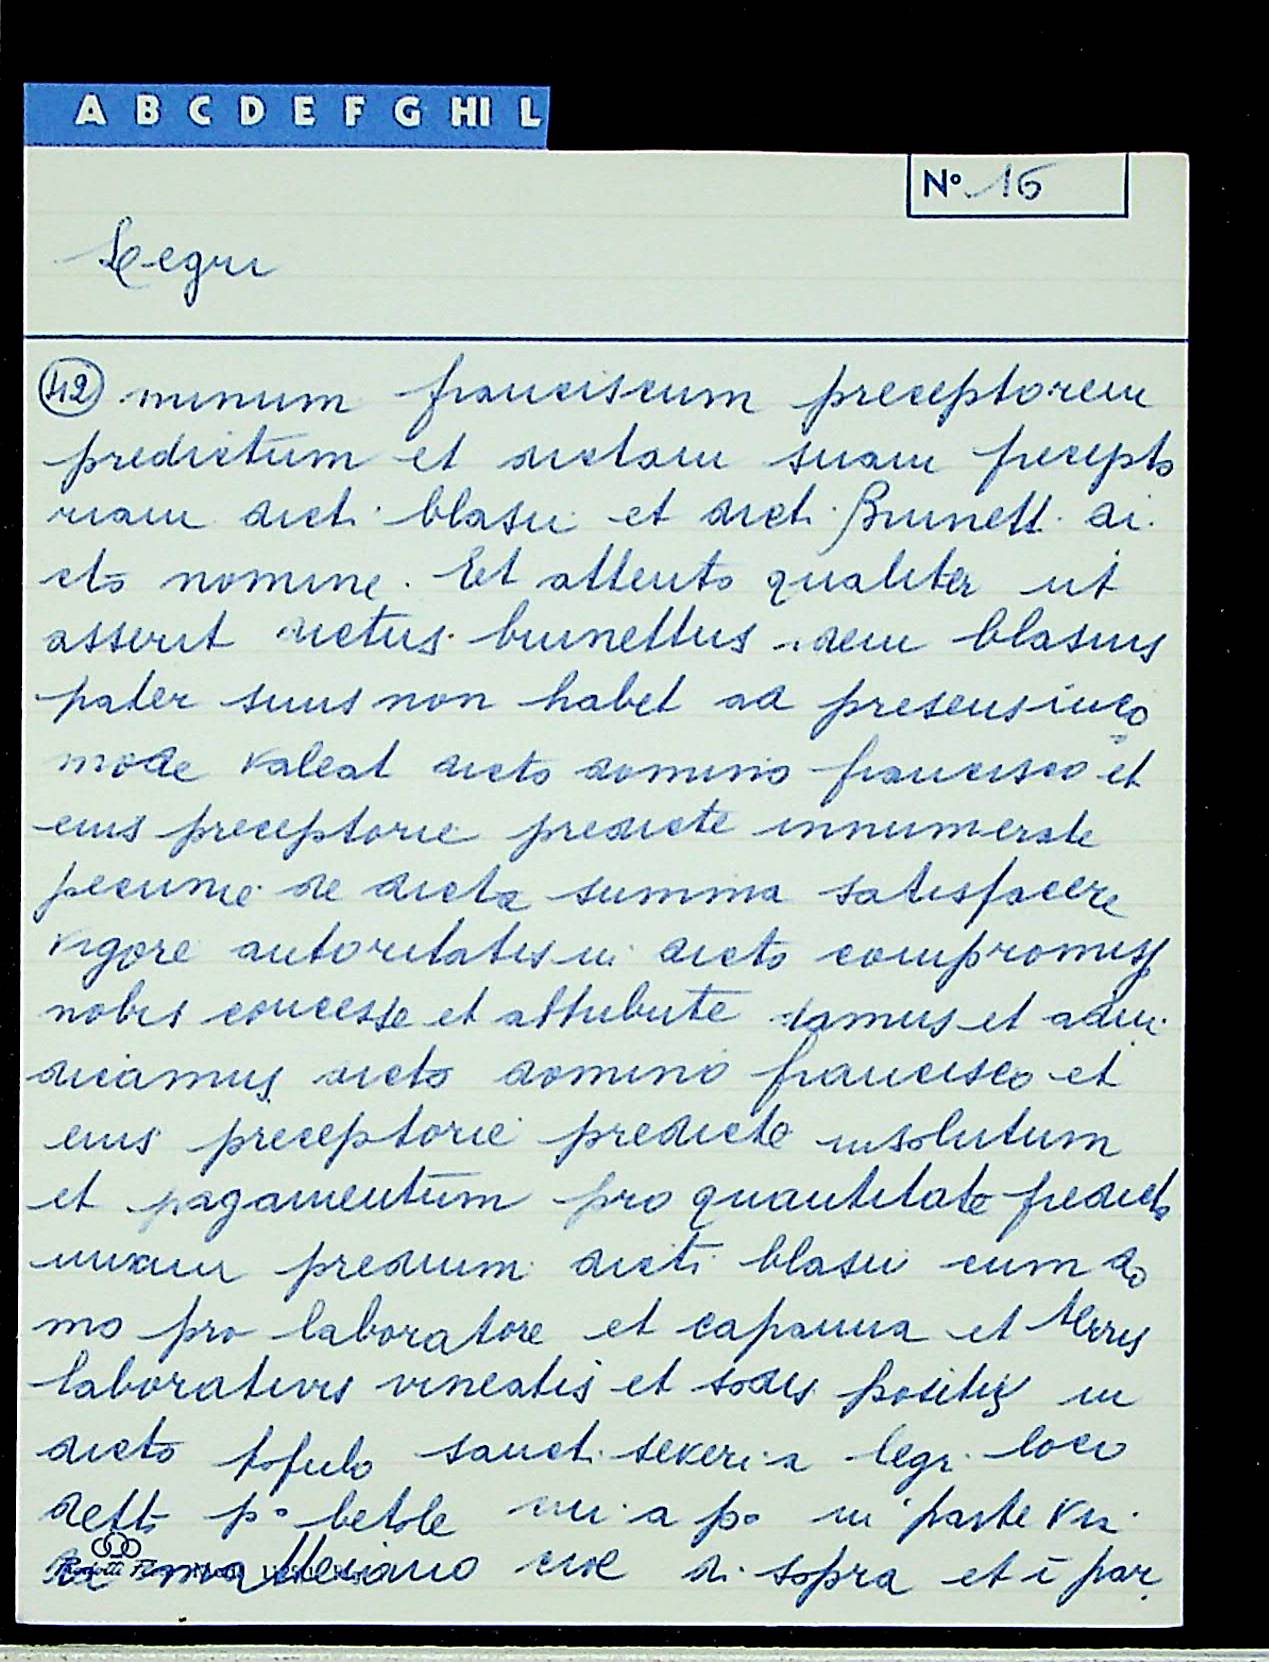 A B C D E F G HI L
N° 16
Legri
42 minum franciscum preceptorem
predictum et dictam suam precepto
riam dicti blasii et dicti Brunetti di
cto nomine. Et attento qualiter ut
asserit dictus brunettus idem blasius
pater suus non habet ad presens inco
mode valeat dicto domino francisco et
eius preceptorie predicte innumerate
pecunie de dicta summa satisfacere
vigore autoritatis in dicto compromiss
nobis concesse et attribute damus et adiu
dicamus dicto domino francisco et
eius preceptorie predicte insolutum
et pagamentum pro quantitate predicta
unum predium dicti blasii cum do
mo pro laboratore et capanna et terris
laborativis vineatis et sodis positis in
dicto popolo sancti severi a legri loco
detto p° betole cui a p° in parte via
di mattesiano cioè di sopra et i par